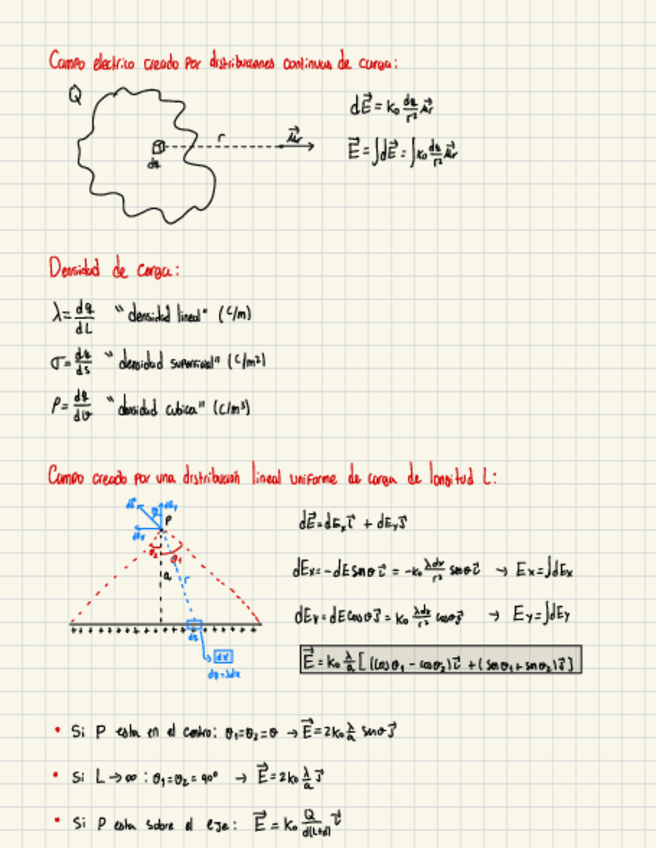 Campo electrico creado por distribuciones continuas de carga:
Q
dq
r
u⃗r
dE⃗ = k₀ dq/r² u⃗r
E⃗ = ∫dE⃗ = ∫k₀ dq/r² u⃗r
Densidad de carga:
λ = dq/dL "densidad lineal" (C/m)
σ = dq/ds "densidad superficial" (C/m²)
ρ = dq/dv "densidad cubica" (C/m³)
Campo creado por una distribución lineal uniforme de carga de longitud L:
dE⃗ = dEx i⃗ + dEy j⃗
dEx = -dE senθ i⃗ = -k₀ λdx/r² senθ i⃗ → Ex = ∫dEx
dEy = dE cosθ j⃗ = k₀ λdx/r² cosθ j⃗ → Ey = ∫dEy
E⃗ = k₀ λ/a [(cosθ₁ - cosθ₂) i⃗ + (senθ₁ + senθ₂) j⃗]
P
θ₂
θ₁
a
r
dq
dx
dq = λdx
• Si P esta en el centro: θ₁=θ₂=θ → E⃗ = 2k₀ λ/a senθ j⃗
• Si L → ∞ : θ₁=θ₂=90° → E⃗ = 2k₀ λ/a j⃗
• Si P esta sobre el eje: E⃗ = k₀ Q/d(L+d) i⃗